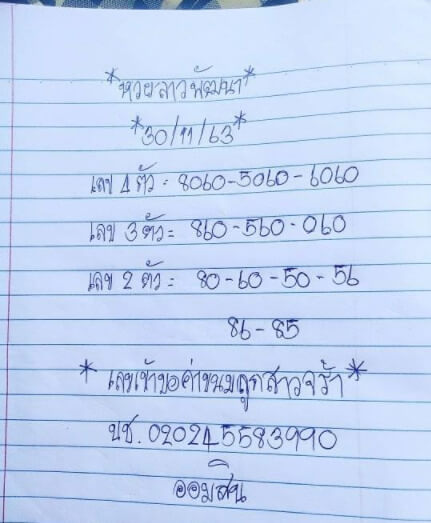 *หวยลาวพัฒนา*
*30/11/63*
เลข 4 ตัว = 8060-5060-6060
เลข 3 ตัว = 860-560-060
เลข 2 ตัว = 80-60-50-56
86-85
* เลขเข้าขอค่าขนมลูกสาวจร้า*
บช. 020245583990
ออมสิน